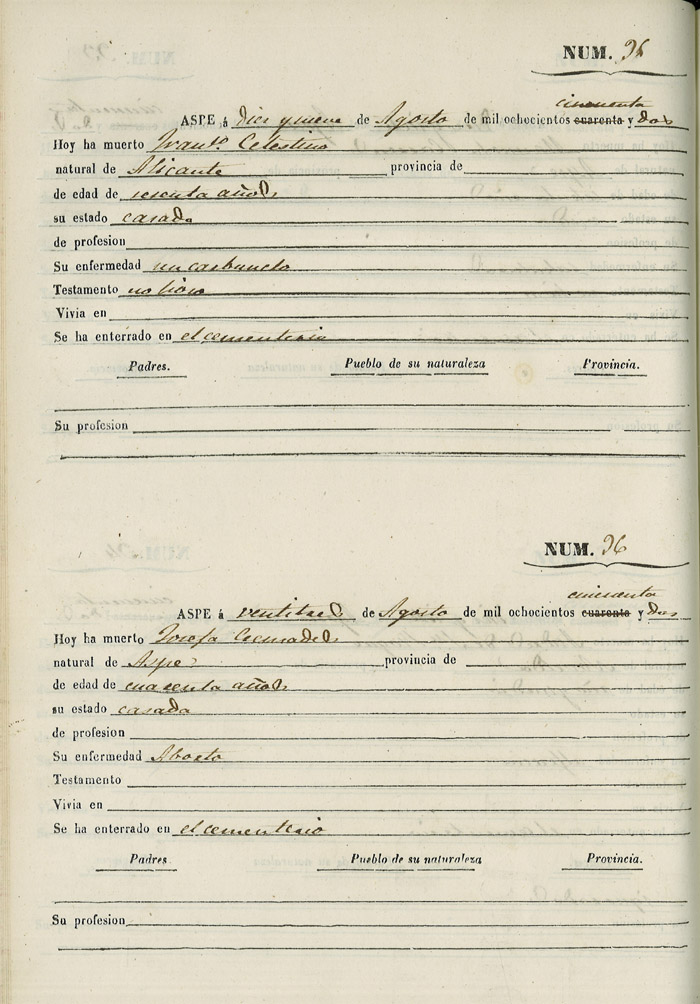 NUM. 96
cincuenta
ASPE á diez y nueve de Agosto de mil ochocientos cuarenta y dos
Hoy ha muerto Franco. Celestino
natural de Alicante provincia de
de edad de sesenta años
su estado casado
de profesion
Su enfermedad un carbunclo
Testamento no hizo
Vivia en
Se ha enterrado en el cementerio
Padres. Pueblo de su naturaleza Provincia.
Su profesion
NUM. 96
cincuenta
ASPE á ventitres de Agosto de mil ochocientos cuarenta y dos
Hoy ha muerto Josefa
natural de Aspe provincia de
de edad de cuarenta años
su estado casada
de profesion
Su enfermedad Aborto
Testamento
Vivia en
Se ha enterrado en el cementerio
Padres Pueblo de su naturaleza Provincia.
Su profesion